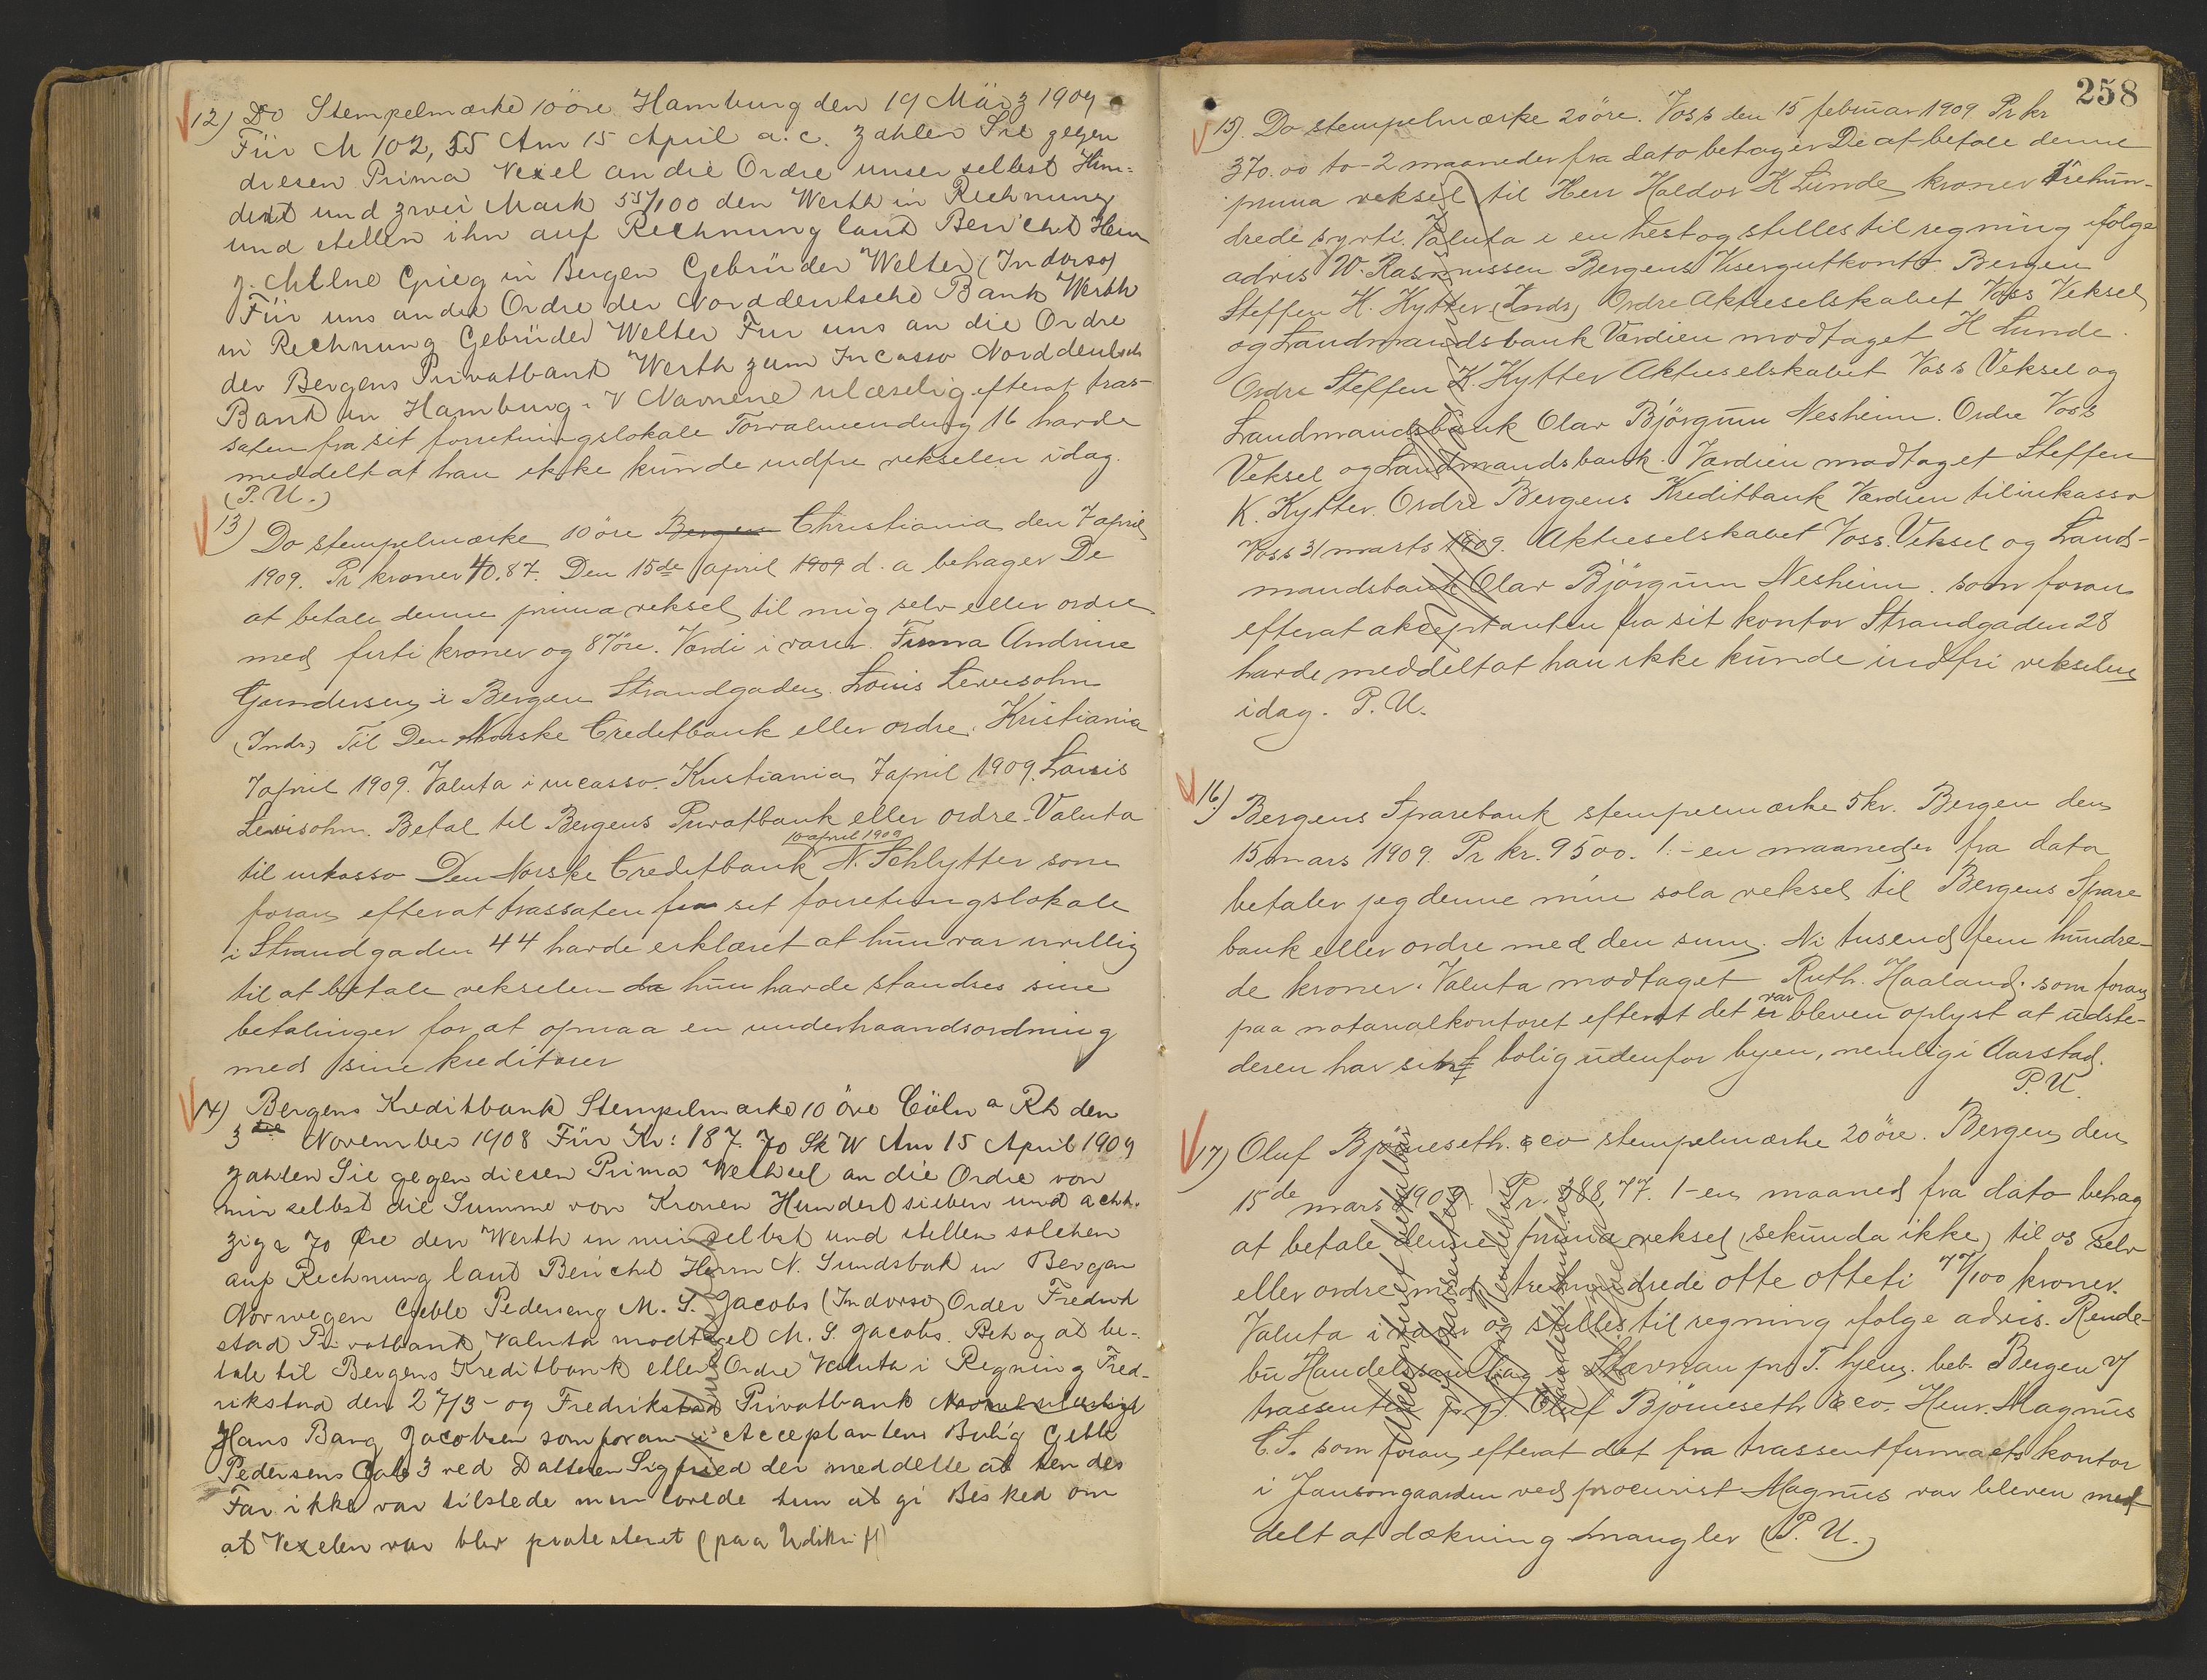 12) Do Stempelmærke 10 öre Hamburg den 19 März 1909
Für M 102,55 Am 15 April a. c. zahlen Sie gegen
diesen Prima Vexel an die Ordre unser selbst Hun-
dert und zwei Mark 55/100 den Werth in Rechnung
und stellen ihn auf Rechnung laut Bericht Herrn
J. Milne Grieg in Bergen Gebrüder Welter (Indorso)
Für uns an die Ordre der Norddeutsche Bank Werth
in Rechnung Gebrüder Welter Für uns an die Ordre
der Bergens Privatbank Werth zum Incasso Norddeutsche
Bank in Hamburg. V Navnene ulæselig efterat tras-
saten fra sit forretningslokale Torvalmending 16 havde
meddelt at han ikke kunde indfri vekselen idag.
(P. U.)
13) Do stempelmærke 10 öre Bergen Christiania den 7 april
1909. Pr kroner 40.87. Den 15de april 1909 d. a behager De
at betale denne prima veksel til mig selv eller ordre
med firti kroner og 87 öre. Værdi i varer. Firma Andrine
Gundersen i Bergen Strandgaden. Louis Levisohn
(Indr) Til Den Norske Creditbank eller ordre. Kristiania
7 april 1909. Valuta i incasso. Kristiania 7 april 1909. Louis
Levisohn. Betal til Bergens Privatbank eller ordre. Valuta
10 april 1909
til inkasso Den Norske Creditbank N. Schlytter som
foran efterat trassaten fra sit forretningslokale
i Strandgaden 44 havde erklæret at hun var uvillig
til at betale vekselen da hun havde standset sine
betalinger for at opnaa en underhaandsordning
med sine kreditorer
14) Bergens Kreditbank Stempelmærke 10 öre Cöln a Rh den
3 November 1908 Für Kr: 187.70 Sk W Am 15 April 1909
zahlen Sie gegen diesen Prima Wechsel an die Ordre von
mir selbst die Summe von Kronen Hundert sieben und acht-
zig & 70 Öre den Werth in mir selbst und stellen solchen
auf Rechnung laut Bericht Herrn N. Sundsbak in Bergen
Norwegen Geble Pederseng M. S. Jacobs (Indorso) Order Fredrik
stad Privatbank Valuta modtaget M. S. Jacobs. Behag at be-
tale til Bergens Kreditbank eller Ordre Valuta i Regning Fred-
rikstad den 27/3 - og Fredrikstad Privatbank
Hans Bang Jacobsen som foran i Acceptantens Bolig Geble
Pedersens Gade 3 ved Datteren Sigfried der meddelte at hendes
Far ikke var tilstede men lovede hun at gi Besked om
at Vexelen var blev protesteret (paa Udskrift)
258
15). Do stempelmærke 20 öre. Voss den 15 februar 1909 Pr kr
370.00 to - 2 maaneder fra dato behager De at betale denne
prima veksel til Herr Haldor K Lunde kroner Trehun-
drede sytti. Valuta i en hest og stilles til regning ifölge
advis W. Rasmussen Bergens Visergutkontor Bergen
Steffen K. Kytter (Indr) Ordre Aktieselskabet Voss Veksel
og Landmandsbank Værdien modtaget H Lunde.
Ordre Steffen K. Kytter Aktieselskabet Voss Veksel og
Landmandsbank Olav Björgum Nesheim. Ordre Voss
Veksel og Landmandsbank. Værdien modtaget Steffen
K. Kytter. Ordre Bergens Kreditbank Værdien til inkasso
Voss 31 marts 1909. Aktieselskabet Voss. Veksel og Land-
mandsbank Olav Björgum Nesheim. som foran
efterat akceptanten fra sit kontor Strandgaden 28
havde meddelt at han ikke kunde indfri vekselen
idag. P. U.
16.) Bergens Sparebank stempelmærke 5 kr. Bergen den
15 mars 1909. Pr kr. 9500. 1. - en maaneder fra dato
betaler jeg denne min sola veksel til Bergens Spare
bank eller ordre med den sum. Ni tusend fem hundre-
de kroner. Valuta modtaget Ruth. Haaland. som foran
paa notarialkontoret efterat det er var bleven oplyst at udste-
deren har sit bolig udenfor byen, nemlig i Aarstad.
P. U.
17) Oluf Björneseth. & co stempelmærke 20 öre. Bergen den
15de mars 1909. Pr. 388,77. 1 - en maaned fra dato behag
at betale denne prima veksel (sekunda ikke) til os selv
eller ordre med trehundrede otte otteti 77/100 kroner.
Valuta i varer og stilles til regning ifölge advis. Rende-
bu Handelssamlag i Stavnan pr. T. hjem. beb. Bergen V/
trassenten pr. pr. Oluf Björneseth & co. Henr. Magnus
C. S. som foran efterat det fra trassentfirmaets kontor
i Jansongaarden ved procurist Magnus var bleven med
delt at dækning mangler (P. U.)